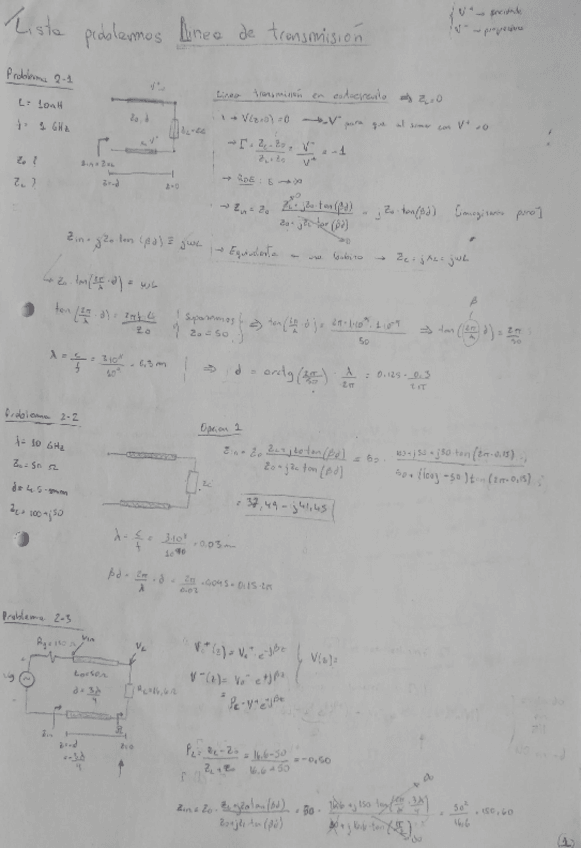 Lista problemas Linea de transmisión
V⁺ →
V⁻ →
Problema 2-1
L = 10nH
f = 1 GHz
Z₀ ?
Z_L ?
Z₀, d
Z=-d Z=0
Linea transmisión en cortocircuito ⇒ Z_L=0
→ V(z=0) = 0 → V⁻ para que al sumar con V⁺ = 0
→ Γ = (Z_L - Z₀)/(Z_L + Z₀) = V⁻/V⁺ = -1
→ ROE: S → ∞
→ Z_in = Z₀ (Z_L + jZ₀ tan(βd))/(Z₀ + jZ_L tan(βd)) = jZ₀ · tan(βd) [imaginario puro]
Z_in = jZ₀ tan(βd) ≡ jωL → Equivaldría a una bobina → Z_L = jX_L = jωL
Z₀ · tan(2π/λ · d) = ωL
tan(2π/λ · d) = 2πf·L/Z₀ { Suponemos Z₀ = 50 } ⇒ tan(2π/λ · d) = /50 ⇒ tan(2π/λ d) = 2π/50
β
λ = c/f = 3·10⁸/10⁹ = 0,3m ⇒ d = arctg(2π/50) · λ/2π = 0.125 · 0.3/2π
Problema 2-2
f = 10 GHz
Z₀ = 50 Ω
d = 4.5 mm
Z_L = 100 + j50
Z_L
Opcion 1
Z_in = Z₀ (Z_L + jZ₀ tan(βd))/(Z₀ + jZ_L tan(βd)) = 50 · (100 + j50 + j50 tan(2π·0.15))/(50 + (100j - 50) tan(2π·0.15))
= 37,49 - j41,45
λ = c/f = 3·10⁸/10¹⁰ = 0.03m
βd = 2π/λ · d = 2π/0.03 · 0.0045 = 0.15·2π
Problema 2-3
Vin
V_L
Vg
Z₀=50Ω
d = 3λ/4
R_L=16,6Ω
Zin
Z=-d Z=0
= -3λ/4
V⁺(z) = V₀⁺ · e^-jβz
V⁻(z) = V₀⁻ · e^+jβz
V(z) =
ρ_L = (Z_L - Z₀)/(Z_L + Z₀) = (16.6 - 50)/(16.6 + 50) = -0,50
Zin = Z₀ · (Z_L + jZ₀ tan(βd))/(Z₀ + jZ_L tan(βd)) = 50 · = 50²/16.6 = 150,60
(1)